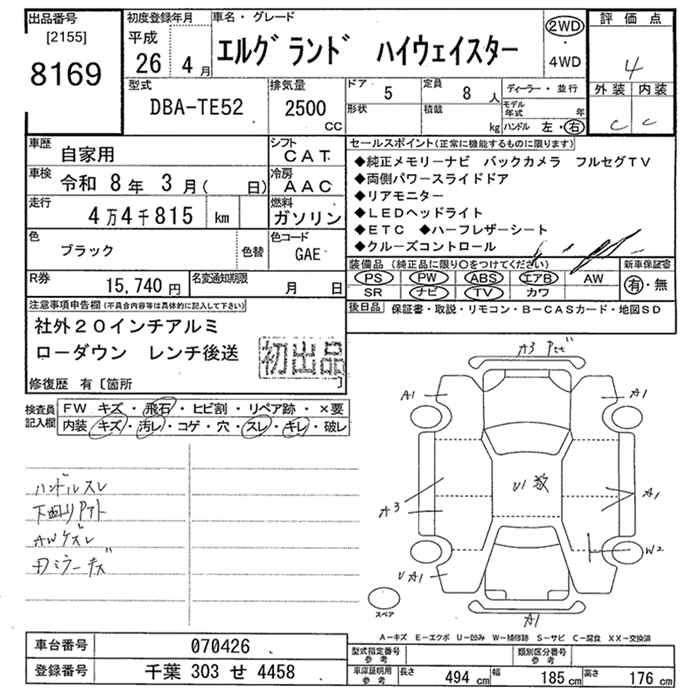 出品番号
[2155]
8169
初度登録年月
平成
26年 4月
車名・グレード
エルグランド ハイウェイスター
2WD
・
4WD
評価点
4
外装 内装
C C
型式
DBA-TE52
排気量
2500
CC
ドア 5
定員 8人
形状
積載 kg
ディーラー・並行
モデル年式 年
ハンドル 左・右
車歴
自家用
シフト
CAT
車検 令和 8年 3月( 日)
冷房
AAC
走行
4万4千815 km
燃料
ガソリン
色
ブラック
色替
色コード
GAE
R券 15,740円
名変通知期限
月 日
セールスポイント(正常に機能するものに限ります)
◆純正メモリーナビ バックカメラ フルセグTV
◆両側パワースライドドア
◆リアモニター
◆LEDヘッドライト
◆ETC ◆ハーフレザーシート
◆クルーズコントロール
装備品 (純正品に限り○をつけてください)
PS PW ABS エアB AW
SR ナビ TV カワ
新車保証書
有・無
後日品 保証書・取説・リモコン・B-CASカード・地図SD
注意事項申告欄(不具合内容等は具体的に記入して下さい)
社外20インチアルミ
ローダウン レンチ後送
初出品
修復歴 有〔箇所
検査員
記入欄
FW キズ・飛石・ヒビ割・リペア跡・×要
内装・キズ・汚レ・コゲ・穴・スレ・キレ・破レ
ハンドルスレ
下回りサビ
AWキズレ
Fミラーキズ
A3
A1
A1
U1 数
A3
A1
W2
UA1
A1
スペア
A-キズ E-エクボ U-凹み W-補修跡 S-サビ C-腐食 XX-交換済
車台番号 070426
登録番号 千葉 303 せ 4458
型式指定番号
参考
類別区分番号
参考
車庫証明用
参考
長さ 494 cm
幅 185 cm
高さ 176 cm